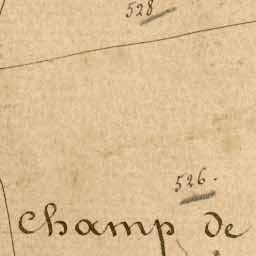 528
526.
Champ de